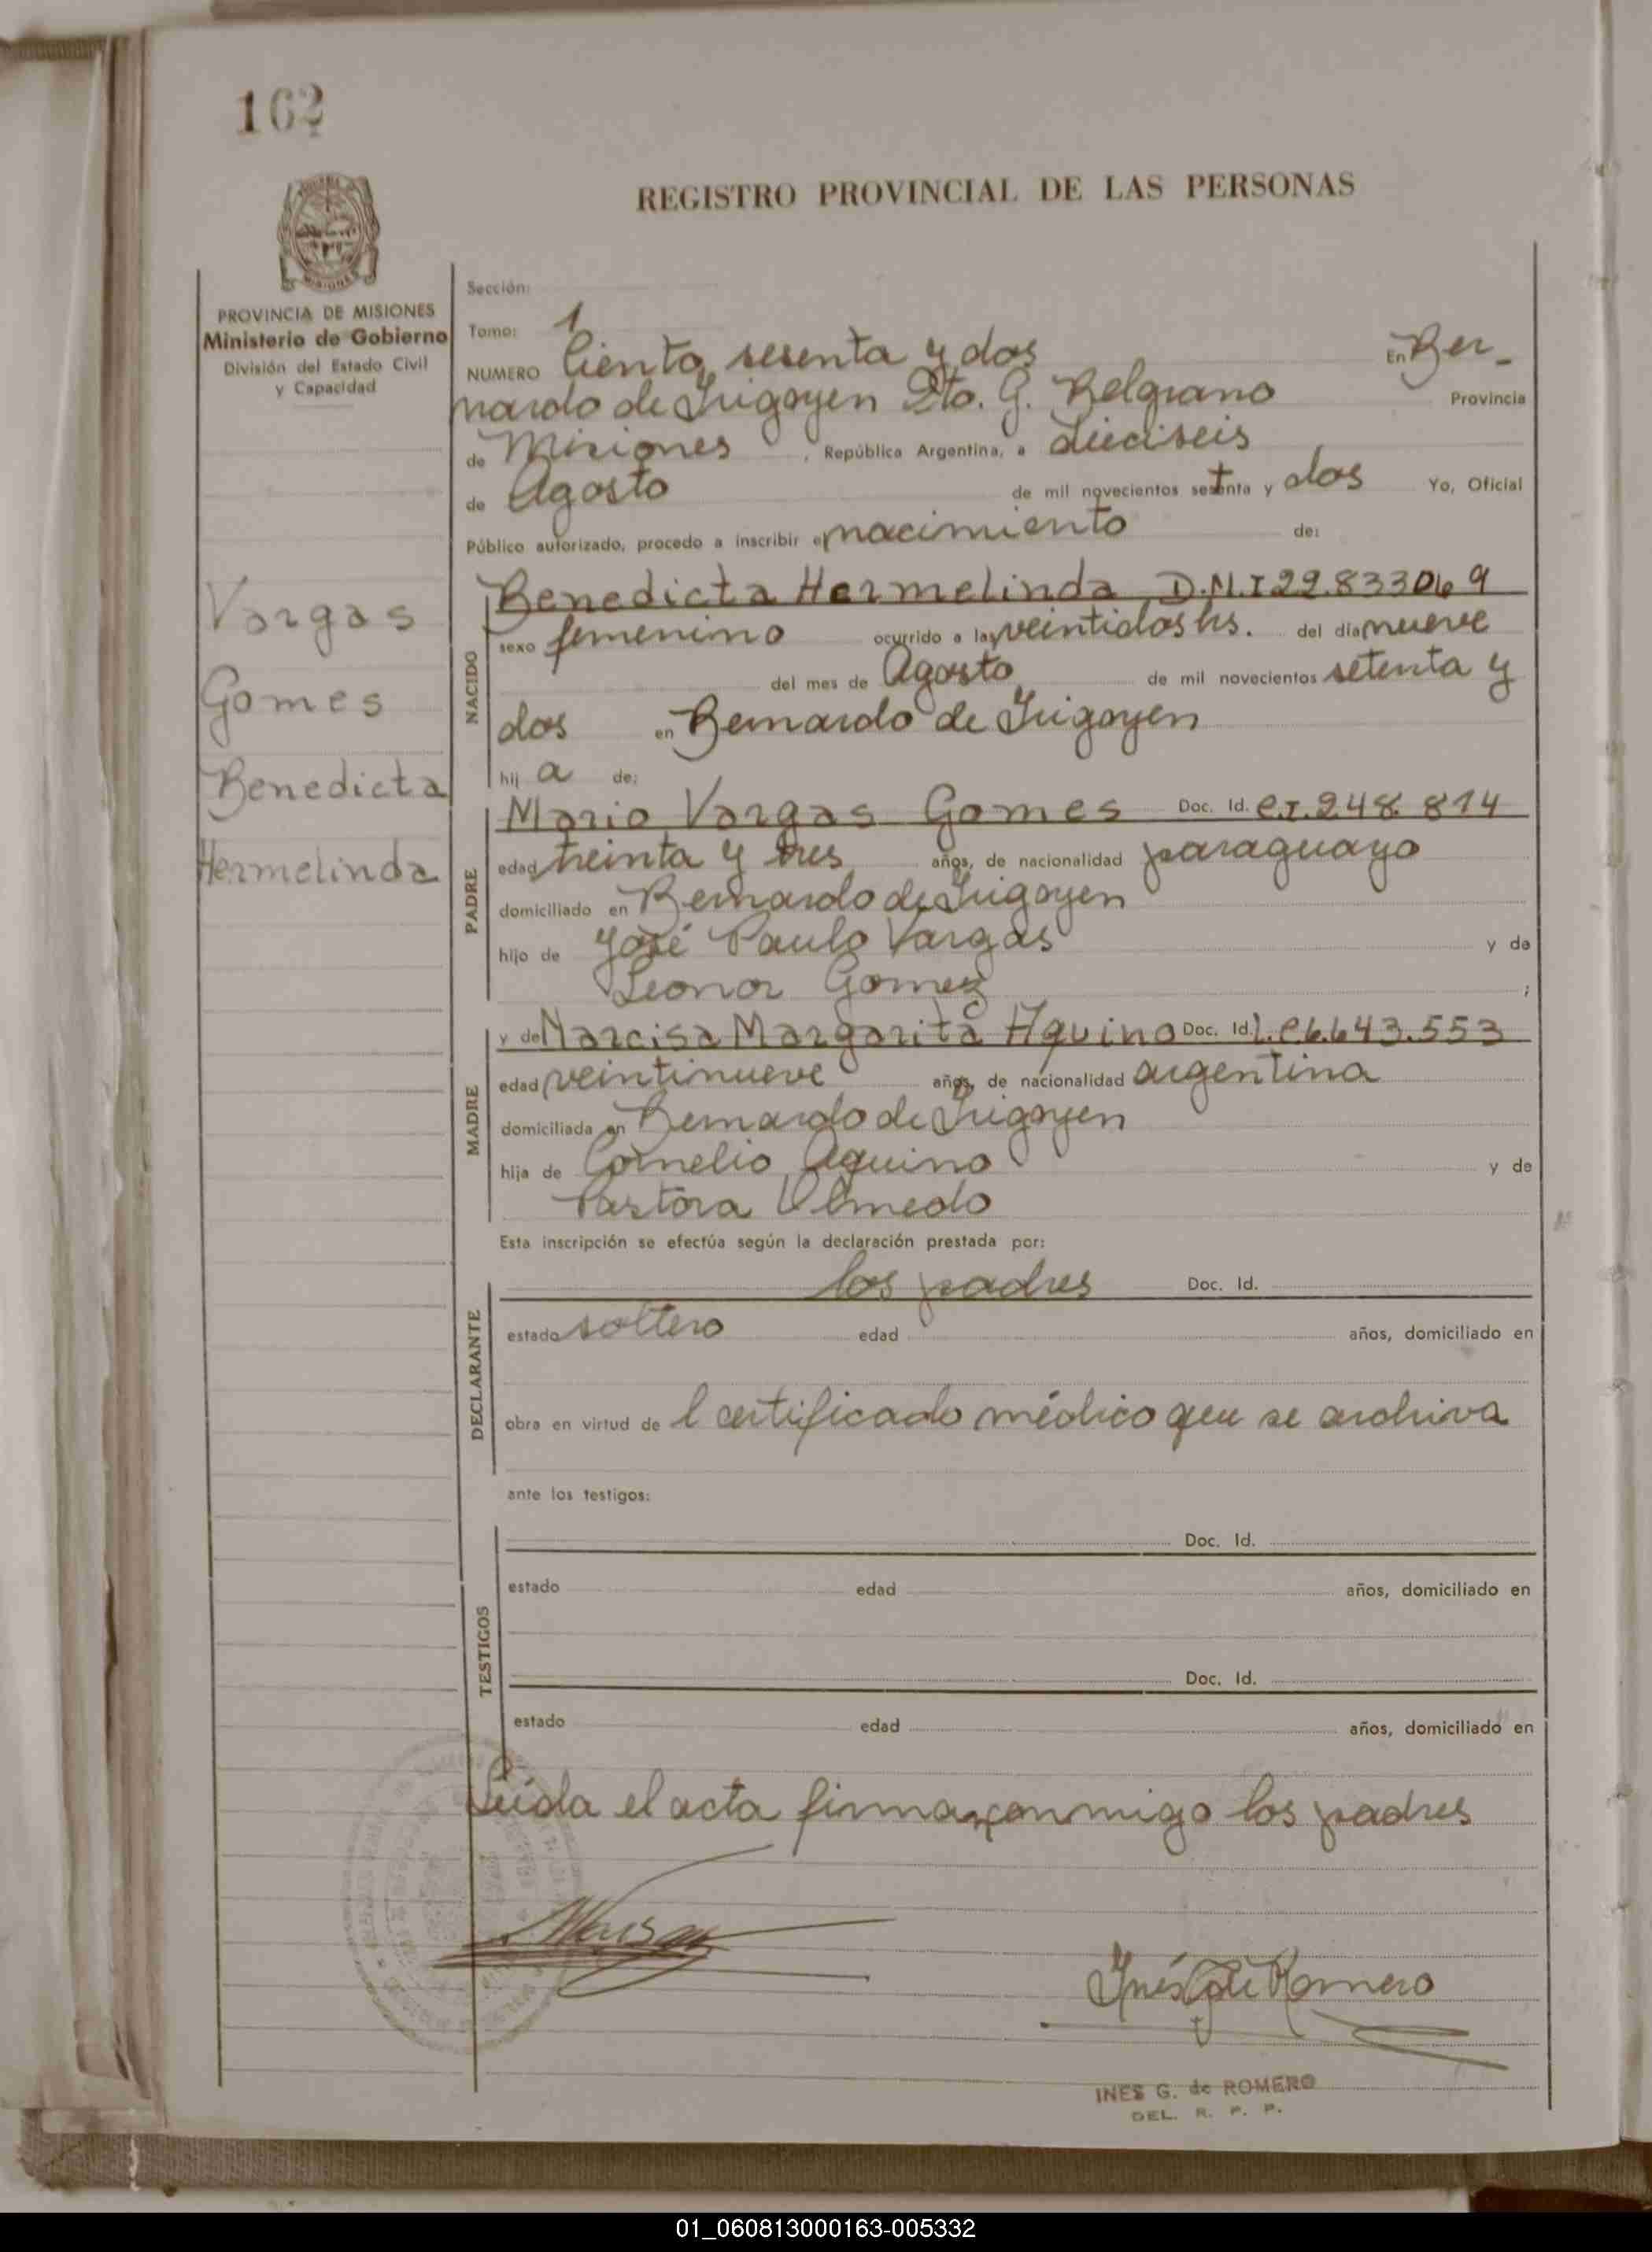 162
REGISTRO PROVINCIAL DE LAS PERSONAS
PROVINCIA DE MISIONES
Ministerio de Gobierno
División del Estado Civil
y Capacidad
Vargas
Gomes
Benedicta
Hermelinda
Sección:
Tomo: 1
NUMERO Ciento sesenta y dos En Ber-
nardo de Irigoyen Dto. G. Belgrano Provincia
de Misiones, República Argentina, a dieciseis
de Agosto de mil novecientos setenta y dos Yo, Oficial
Público autorizado, procedo a inscribir el nacimiento de:
NACIDO
Benedicta Hermelinda D.N.I 29.833069
sexo femenino ocurrido a las veintidos hs. del día nueve
del mes de Agosto de mil novecientos setenta y
dos en Bernardo de Irigoyen
hij a de:
PADRE
Mario Vargas Gomes Doc. Id. C.I. 248.814
edad treinta y tres años, de nacionalidad paraguayo
domiciliado en Bernardo de Irigoyen
hijo de José Paulo Vargas y de
Leonor Gomez ;
MADRE
y de Narcisa Margarita Aquino Doc. Id. L.C 6.643.553
edad veintinueve años, de nacionalidad argentina
domiciliada en Bernardo de Irigoyen
hija de Cornelio Aquino y de
Pastora Olmedo
Esta inscripción se efectúa según la declaración prestada por:
DECLARANTE
los padres Doc. Id.
estado soltero edad años, domiciliado en
obra en virtud de l certificado médico que se archiva
ante los testigos:
TESTIGOS
Doc. Id.
estado edad años, domiciliado en
Doc. Id.
estado edad años, domiciliado en
Leída el acta firman conmigo los padres
Inés G de Romero
INES G. de ROMERO
DEL. R. P. P.
01_060813000163-005332